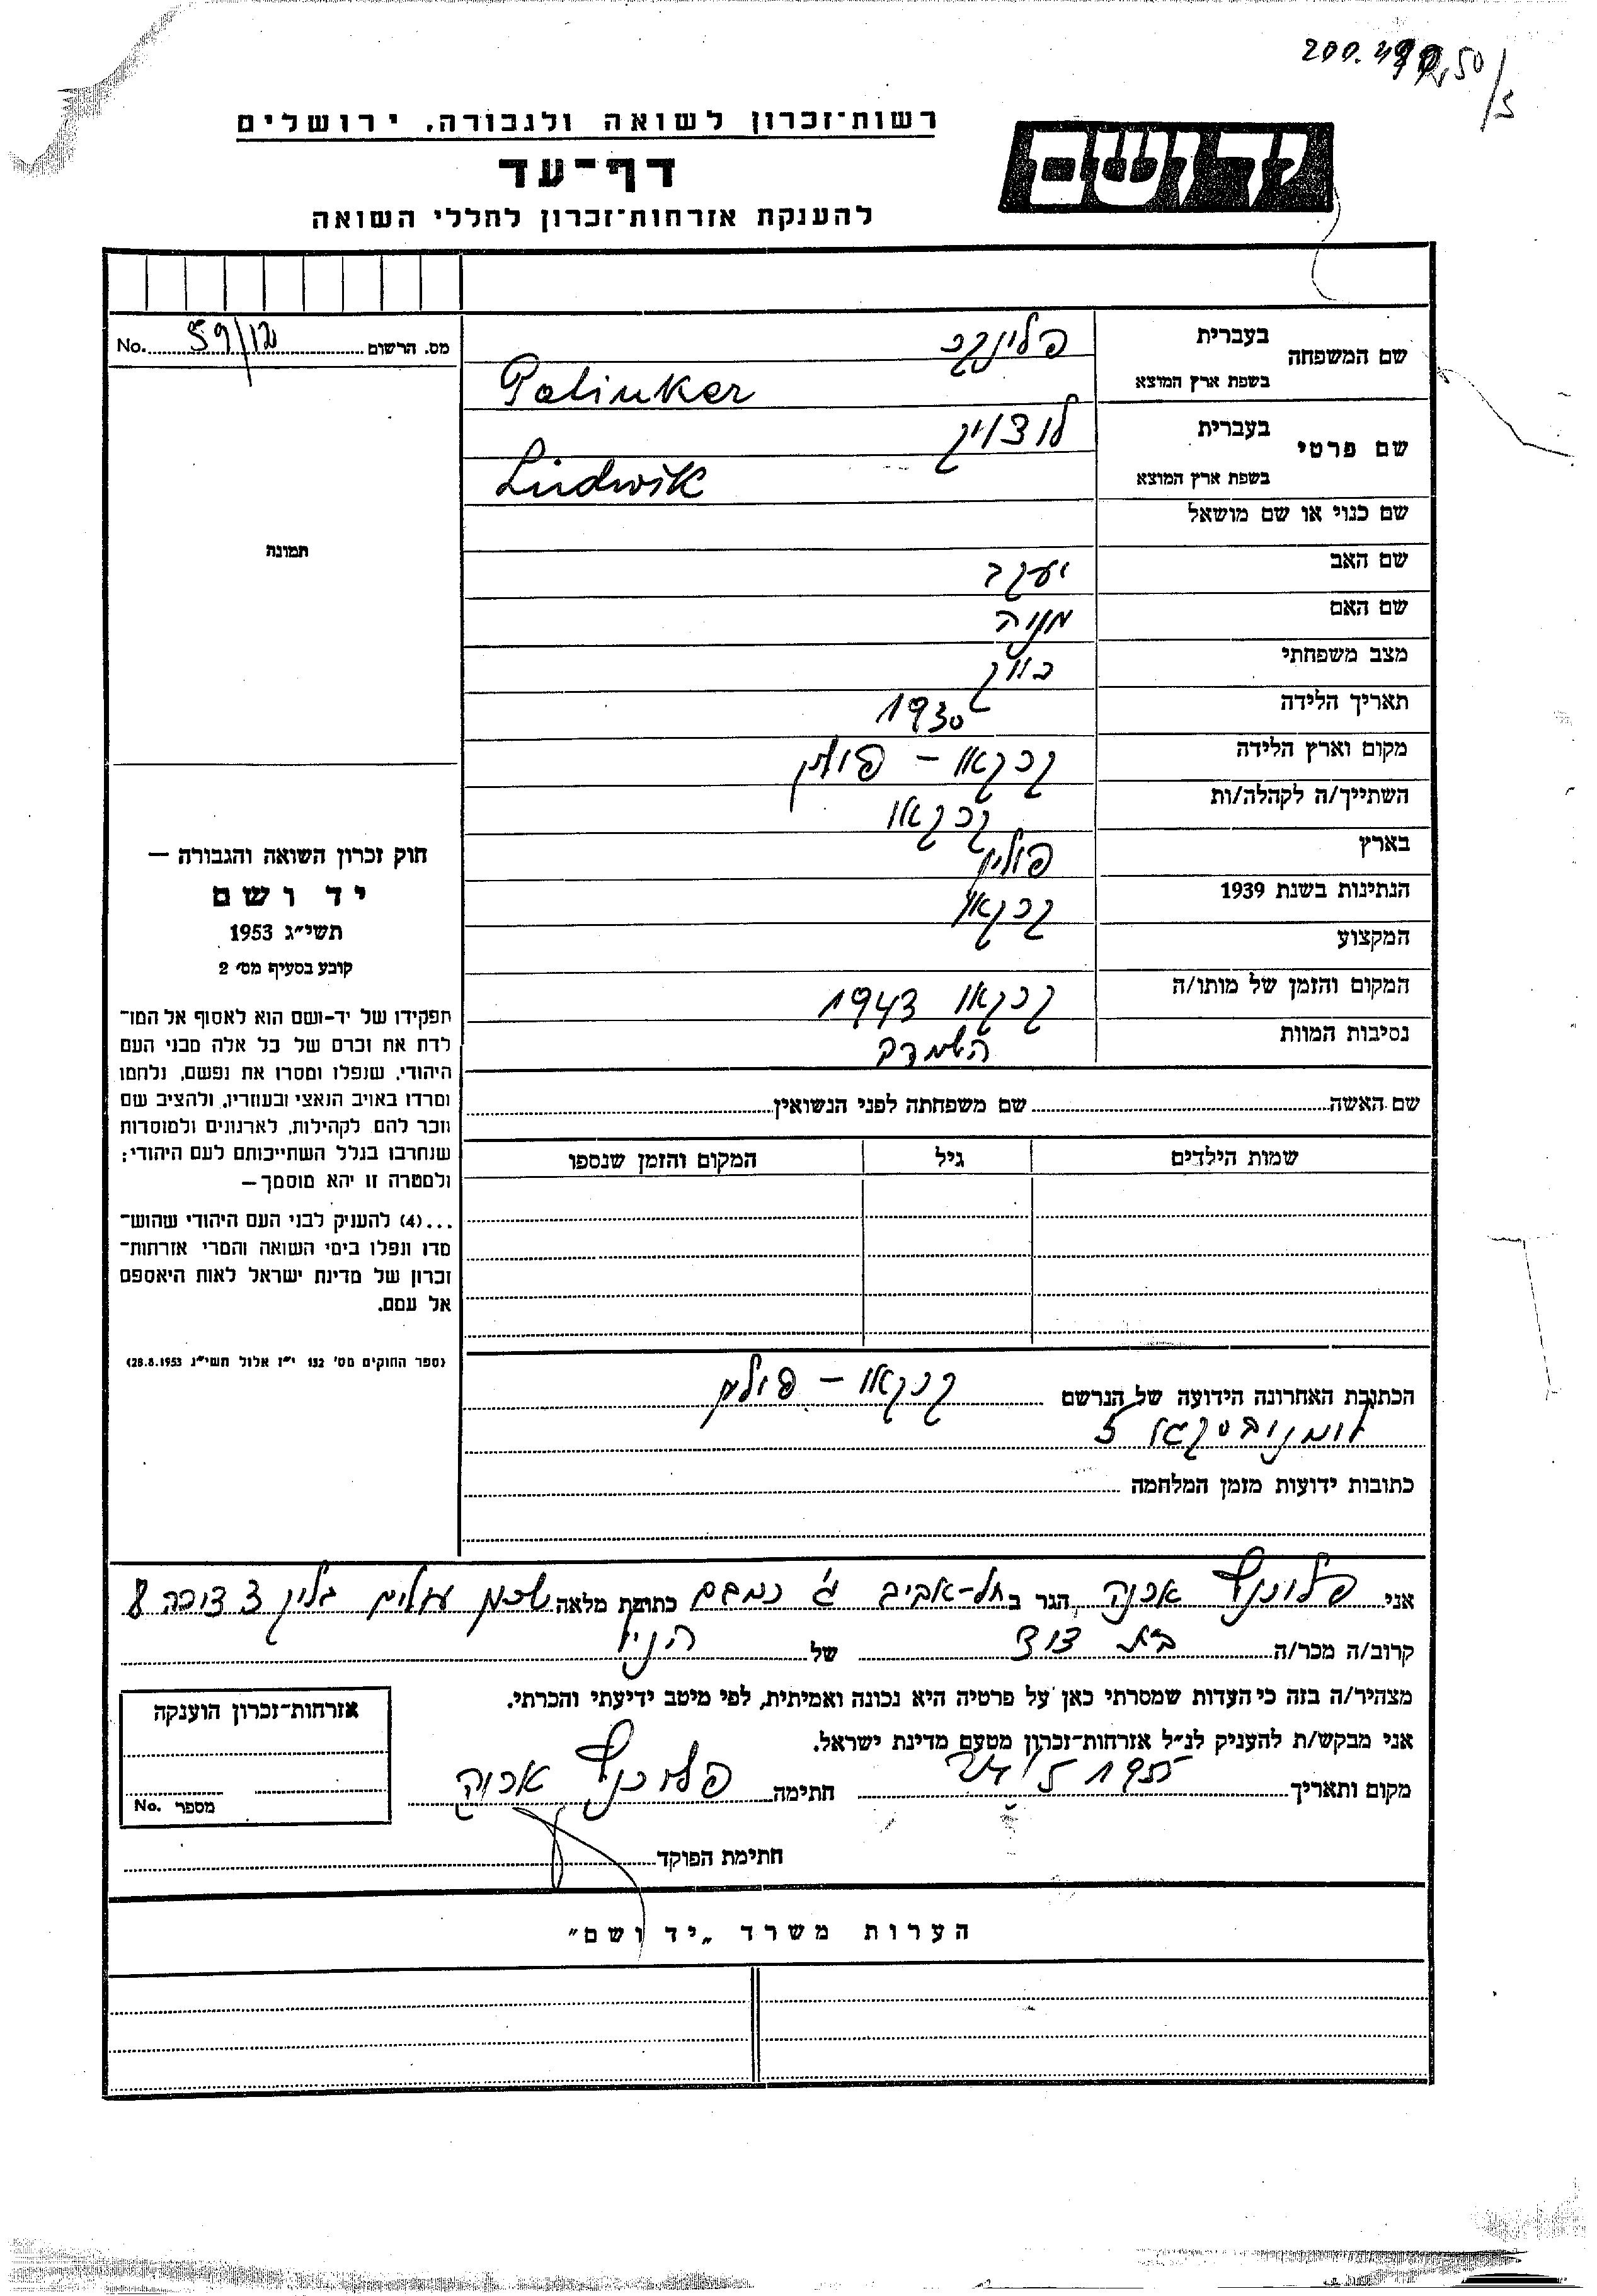 רשות־זכרון לשואה ולגבורה, ירושלים
יד ושם
דף־עד
להענקת אזרחות־זכרון לחללי השואה
מס. הרשום 59/12 No.
תמונה
שם המשפחה
בעברית פלינקר
בשפת ארץ המוצא Palinker
שם פרטי
בעברית לודויק
בשפת ארץ המוצא Ludwik
שם כנוי או שם מושאל
שם האב יעקב
שם האם מניה
מצב משפחתי רווק
תאריך הלידה 1930
מקום וארץ הלידה קרקאו – פולין
השתייך/ה לקהלה/ות קרקאו
בארץ פולין
הנתינות בשנת 1939 קרקאו
המקצוע
המקום והזמן של מותו/ה קרקאו 1943
נסיבות המוות
שם האשה שם משפחתה לפני הנשואין
שמות הילדים גיל המקום והזמן שנספו
חוק זכרון השואה והגבורה —
יד ושם
תשי״ג 1953
קובע בסעיף מס׳ 2
תפקידו של יד-ושם הוא לאסוף אל המו־
לדת את זכרם של כל אלה מבני העם
היהודי, שנפלו ומסרו את נפשם, נלחמו
ומרדו באויב הנאצי ובעוזריו, ולהציב שם
וזכר להם לקהילות, לארגונים ולמוסדות
שנחרבו בגלל השתייכותם לעם היהודי;
ולמטרה זו יהא מוסמך—
...(4) להעניק לבני העם היהודי שהוש־
מדו ונפלו בימי השואה והמרי אזרחות־
זכרון של מדינת ישראל לאות היאספם
אל עמם.
(ספר החוקים מס׳ 132 י״ז אלול תשי״ג 28.8.1953)
הכתובת האחרונה הידועה של הנרשם קרקאו – פולין
5
כתובות ידועות מזמן המלחמה
אני הגר ב תל-אביב כתובת מלאה שכון עולים
קרוב/ה מכר/ה בת דוד של הנ״ל
מצהיר/ה בזה כי העדות שמסרתי כאן על פרטיה היא נכונה ואמיתית, לפי מיטב ידיעתי והכרתי.
אני מבקש/ת להעניק לנ״ל אזרחות־זכרון מטעם מדינת ישראל.
מקום ותאריך חתימה
חתימת הפוקד
אזרחות־זכרון הוענקה
מספר No.
הערות משרד „יד ושם״